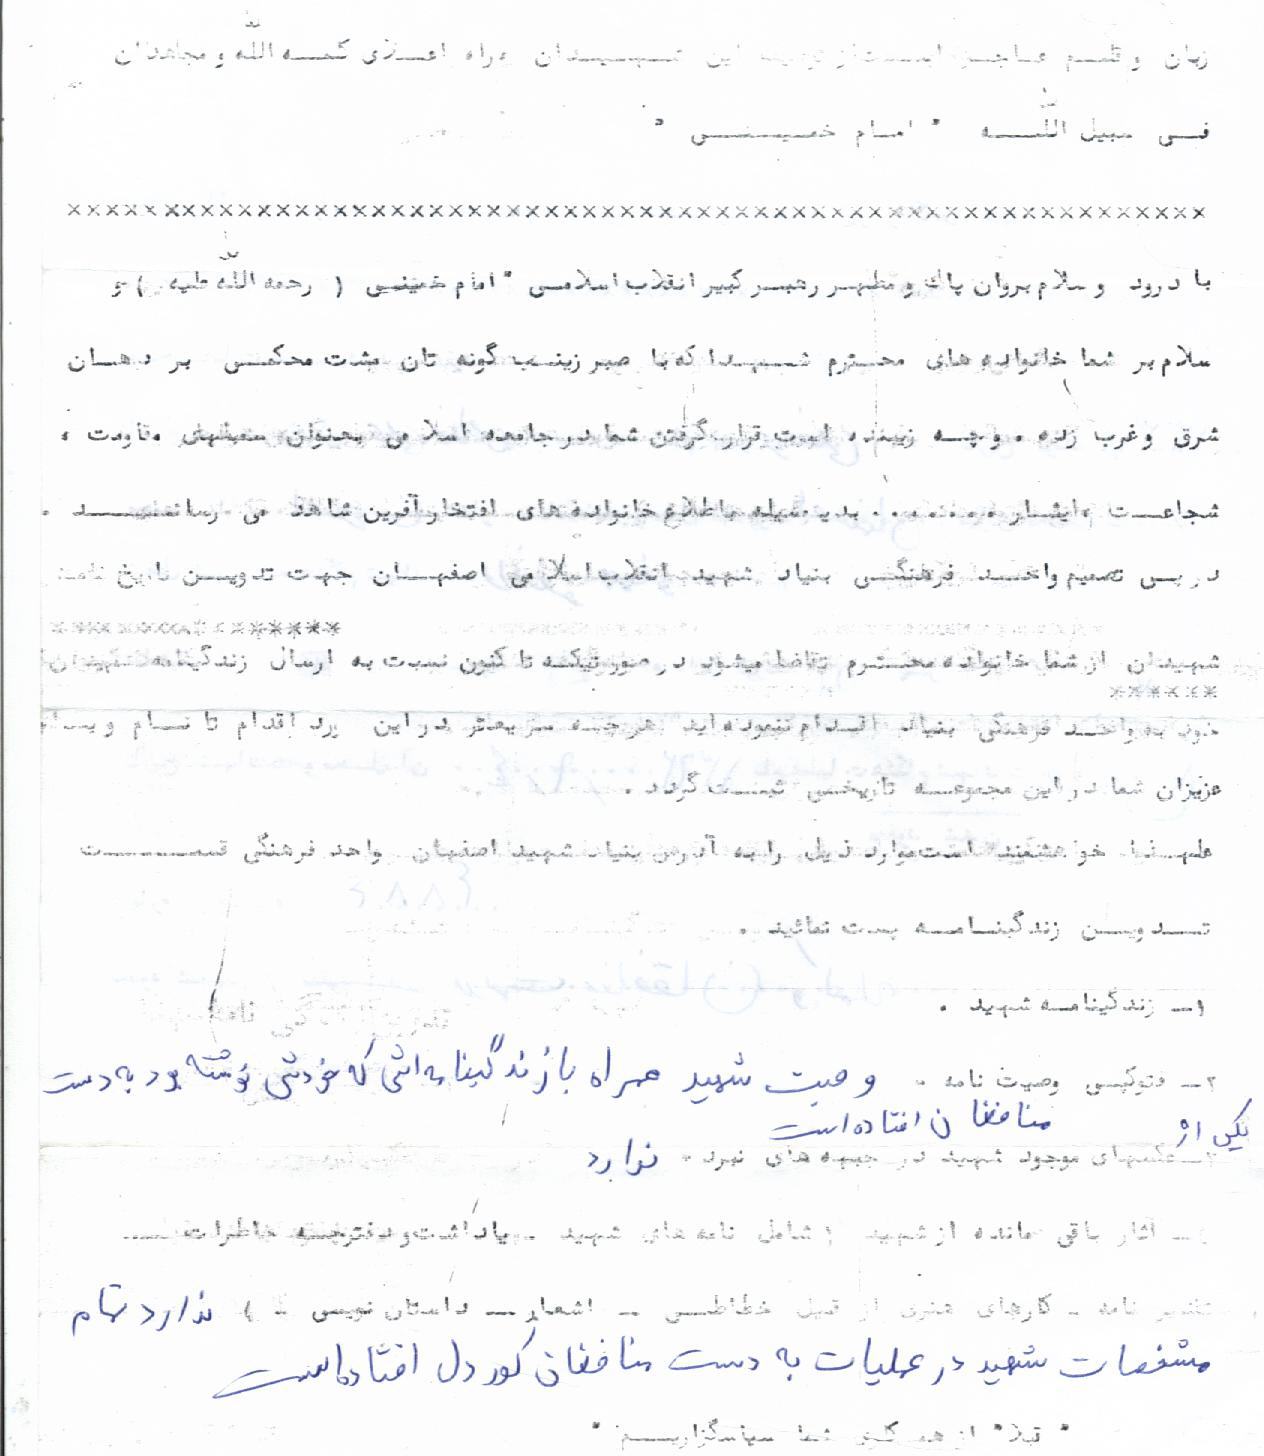 زبان و قلم عاجز است از توصیف این شهیدان راه اعلای کلمه الله و مجاهدان
فی سبیل الله " امام خمینی "
××××××××××××××××××××××××××××××××××××××××××××××××××××××××××××××
با درود و سلام بروان پاك و مطهر رهبر کبیر انقلاب اسلامی " امام خمینی ( رحمه الله علیه ) و
سلام بر شما خانواده های محترم شهدا که با صبر زینب گونه تان مشت محکمی بر دهان
شرق و غرب زده . و چه زیبنده است قرار گرفتن شما در جامعه اسلامی بعنوان سمبلهای مقاومت ،
شجاعت ، ایثار . . . . . . . بدینوسیله باطلاع خانواده های افتخار آفرین شاهد می رساند .
در پی تصمیم واحد فرهنگی بنیاد شهید انقلاب اسلامی اصفهان جهت تدوین تاریخ نامه
شهیدان از شما خانواده محترم تقاضا میشود در صورتیکه تا کنون نسبت به ارسال زندگینامه شهیدان
خود به واحد فرهنگی بنیاد اقدام ننموده اید هر چه سریعتر در این مورد اقدام تا نام و یاد
عزیزان شما در این مجموعه تاریخی ثبت گردد .
علیهذا خواهشمند است موارد ذیل را به آدرس بنیاد شهید اصفهان واحد فرهنگی قسمت
تدوین زندگینامه پست نمائید .
۱- زندگینامه شهید .
۲- فتوکپی وصیت نامه . وصیت شهید همراه با زندگینامه اش که خودش نوشته بود به دست
یکی از منافقان افتاده است
۳- عکسهای موجود شهید در جبهه های نبرد . ندارد
- آثار باقی مانده از شهید ( شامل نامه های شهید - یادداشت و دفترچه خاطرات
تقدیر نامه - کارهای هنری از قبیل خطاطی - اشعار - داستان نویسی - ) ندارد تمام
مشخصات شهید در عملیات به دست منافقان کور دل افتاده است
" قبلا " از همکاری شما سپاسگزاریم "